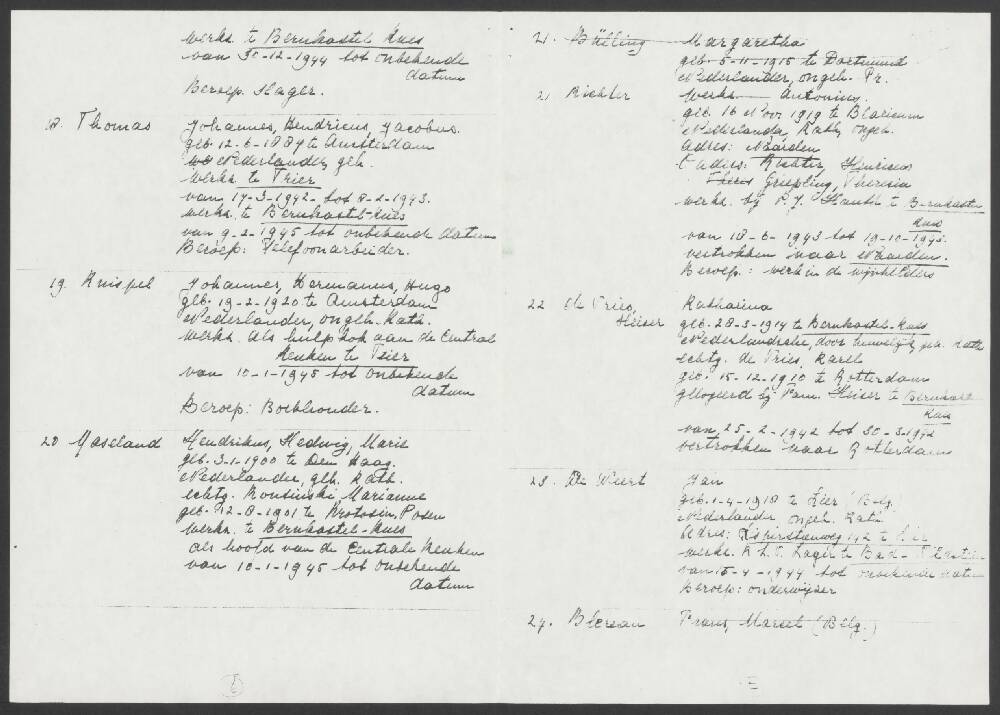 werkz. te Bernkastel-Kues
van 30-12-1944 tot onbekende
datum
Beroep. Slager.
18. Thomas Johannes, Hendricus, Jacobus.
geb. 12-6-1889 te Amsterdam
Nederlander, geh.
werkz. te Trier
van 17-3-1942- tot 8-2-1943.
werkz. te Bernkastel-Kues
van 9-2-1945 tot onbekende datum
Beroep: Telefoonarbeider.
19. Knispel Johannes, Hermannus, Hugo
geb. 19-2-1920 te Amsterdam
Nederlander, ongeh. Kath.
werkz. als hulpkok aan de Central
Keuken te Trier
van 10-1-1945 tot onbekende
datum
Beroep: Boekhouder.
20 Maseland Hendrikus, Hedwig, Marie
geb. 3-1-1900 te Den Haag.
Nederlander, geh. Kath.
echtg. Konsinski, Marianne
geb. 12-8-1901 te Krotosin, Posen
werkz. te Bernkastel-Kues
als hoofd van de Centrale Keuken
van 10-1-1945 tot onbekende
datum
21. Bülling Margaretha
geb. 5-11-1915 te Dortmund
Nederlander, ongeh. Pr.
21 Richter Antonius.
geb. 16 Nov 1919 te Blaricum
Nederlander, Kath, ongeh.
adres: Naarden
adres: Richter, Henricus
Griepling, Theresia
werkz. bij P.J. te Bernkastel
Kues
van 18-6-1943 tot 19-10-1943.
vertrokken naar Naarden.
Beroep.: werk in de wijnkelders
22 de Vries, Heiser Katharina
geb. 28-3-1914 te Bernkastel-Kues
Nederlandsche, door huwelijk, geh. Kath
echtg. de Vries, Karel
geb. 15-12-1910 te Rotterdam
gelogeerd bij Fam. Heiser te Bernkastel
Kues
van 25-2-1942 tot 30-3-1942
vertrokken naar Rotterdam
23. De Weert Jan
geb. 1-4-1918 te Lier Belg.
Nederlander, ongeh. Kath.
Adres: 142 te Lier
werkz. Lager te Bad-
van 15-4-1944 tot onbekende datum
Beroep: onderwijzer
24. Frans, Marcel (Belg.)
E